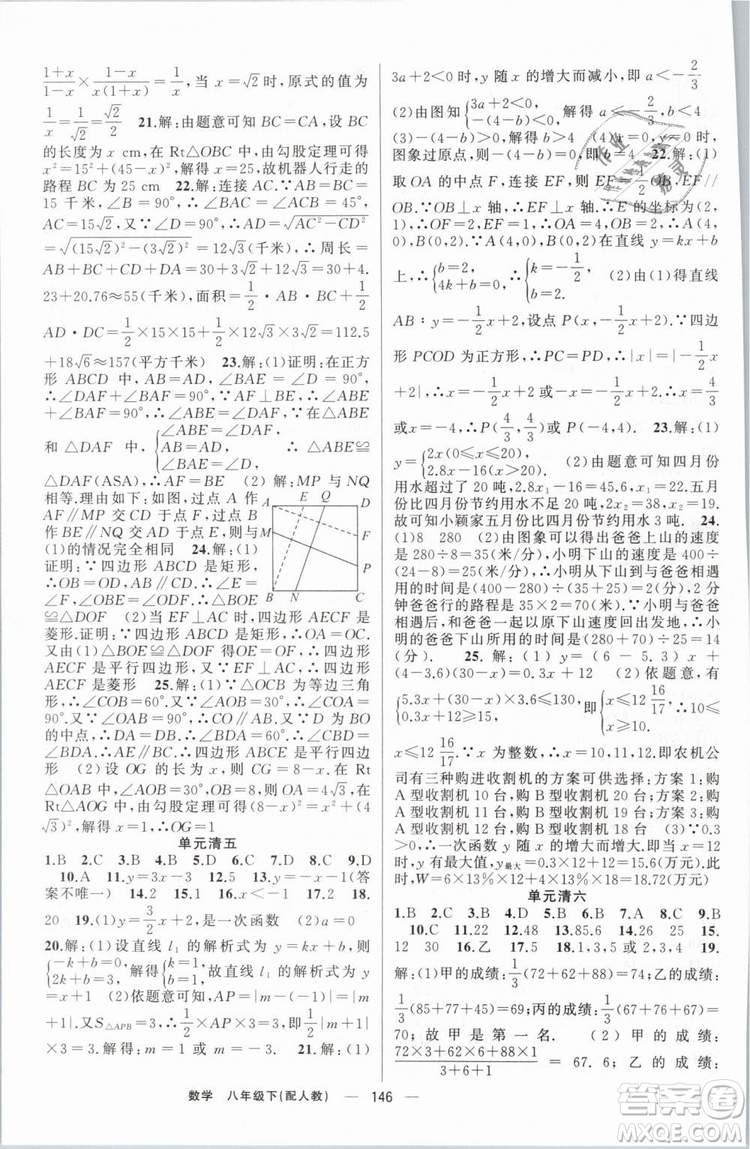 $\frac{1+x}{1-x}\times\frac{1-x}{x(1+x)}=\frac{1}{x}$,当 $x=\sqrt{2}$ 时,原式的值为
$\frac{1}{x}=\frac{1}{\sqrt{2}}=\frac{\sqrt{2}}{2}$ 21.解:由题意可知 BC=CA,设 BC
的长度为 x cm,在 Rt△OBC 中,由勾股定理可得
x²=15²+(45-x)²,解得 x=25,故机器人行走的
路程 BC 为 25 cm 22.解:连接 AC,∵AB=BC=
15 千米,∠B=90°,∴∠BAC=∠ACB=45°,
AC=15√2,又∵∠D=90°,∴AD=√(AC²-CD²)=
√((15√2)²-(3√2)²)=12√3(千米),∴周长=
AB+BC+CD+DA=30+3√2+12√3≈30+4.
23+20.76≈55(千米),面积=$\frac{1}{2}$·AB·BC+$\frac{1}{2}$
AD·DC=$\frac{1}{2}$×15×15+$\frac{1}{2}$×12√3×3√2=112.5
+18√6≈157(平方千米) 23.解:(1)证明:在正方
形 ABCD 中,AB=AD,∠BAE=∠D=90°,
∴∠DAF+∠BAF=90°,∵AF⊥BE,∴∠ABE
+∠BAF=90°,∴∠ABE=∠DAF,∵在△ABE
和△DAF 中,{∠ABE=∠DAF, AB=AD, ∠BAE=∠D, ∴△ABE≌
△DAF(ASA),∴AF=BE (2)解:MP 与 NQ
相等.理由如下:如图,过点 A 作
AF∥MP 交 CD 于点 F,过点 B
作 BE∥NQ 交 AD 于点 E,则与
(1)的情况完全相同 24.解:(1)
证明:∵四边形 ABCD 是矩形,
∴OB=OD,∵AE∥CF,∴∠E=
∠F,∠OBE=∠ODF.∴△BOE
≌△DOF (2)当 EF⊥AC 时,四边形 AECF 是
菱形.证明:∵四边形 ABCD 是矩形,∴OA=
OC.又∵由(1)△BOE≌△DOF 得 OE=OF,∴四边形
AECF 是平行四边形,又∵EF⊥AC,∴四边形
AECF 是菱形 25.解:(1)∵△OCB 为等边三角
形,∴∠COB=60°.又∵∠BOA=30°,∴∠COA=
90°.又∵∠OAB=90°,∴CO∥AB.又∵D 为 BO
的中点,∴DO=DB.又∵∠ODC=∠BDE,∠COB
=∠DBE,∴△CDO≌△EDB,∴CO=EB,
∴CO綊EB,∴四边形 ABCE 是平行四边
形 (2)设 OG 的长为 x,∴GC=8-x.在 Rt
△AOG 中,由勾股定理可得(8-x)²=x²+
(4√3)²,解得 x=1,∴OG=1
单元清五
1.B 2.C 3.B 4.D 5.C 6.B 7.C 8.C 9.D
10.A 11.y=3x-3 12.4 13.y=-x-1(答
案不唯一) 14.2 15.1 16.-1 17.x<1 18.
20 19.(1)y=$\frac{3}{2}$x+2,是一次函数 (2)a=0
20.解:(1)设直线 l₁ 的解析式为 y=kx+b,则
{-k+b=0, 2k+b=3, 解得{k=1, b=1,∴直线 l₁ 的解析式为 y
=x+1 (2)依题意可知,AP=|m-(-1)|=|m
+1|.又S△APB=3,∴$\frac{1}{2}$AP×3=3,即$\frac{1}{2}$|m+1|
×3=3.解得:m=1 或 m=-3 21.解:(1)
3a+2<0 时,y 随 x 的增大而减小,即 a<-$\frac{2}{3}$
(2)由图知{3a+2<0, -(4-b)>0,解得 a<-$\frac{2}{3}$,b<4
(3)-(4-b)>0,解得 b>4
图象过原点,
22.解:(1)
取 OA 的中点 F,连接 EF,则 EF∥
OB.∵OB⊥x 轴,∴EF⊥x 轴,∴E 的坐标为(2,
0).又∵A(4,0),B(0,2)在直线 y=kx+b
上,∴{b=2, 4k+b=0,∴{k=-$\frac{1}{2}$, b=2. (2)由(1)得直线
AB:y=-$\frac{1}{2}$x+2,设点 P(x,-$\frac{1}{2}$x+2).∵四边
形 PCOD 为正方形,∴PC=PD,∴|x|=|-$\frac{1}{2}$x
+2|,∴x=-$\frac{1}{2}$x+2 或 x=$\frac{1}{2}$x-2,解得 x=$\frac{4}{3}$
或 x=-4,∴P($\frac{4}{3}$,$\frac{4}{3}$)或 P(-4,4) 23.解:(1)
y={2x(0≤x≤20), 2.8x-16(x>20) (2)由题意可知四月份
用水超过了 20 吨,∴2.8x₁-16=45.6,x₁=22.五月
份比四月份节约用水不足 20 吨,∴2x₂=38,x₂=19.
故可知小颖家五月份比四月份节约用水 3 吨. 24.
(1)8 280 (2)由图象可以得出爸爸上山的速度
是:280÷8=35(米/分),小明下山的速度是:400÷
(24-8)=25(米/分),∴小明从下山到与爸爸相遇
用的时间是:(400-280)÷(35+25)=2(分),2 分
钟爸爸行的路程是 35×2=70(米),∵小明与爸爸
相遇后,和爸爸一起以原下山速度回出发地,∴小
明的爸爸下山所用的时间是:(280+70)÷25=14
(分). 25.解:(1)y=(6-5.3)x+
(4-3.6)(30-x)=0.3x+12 (2)依题意,有
{5.3x+(30-x)×3.6≤130, 0.3x+12≥15, 即{x≤12$\frac{16}{17}$, x≥10, ∴10≤
x≤12$\frac{16}{17}$.∵x 为整数,∴x=10,11,12.即农机公
司有三种购进收割机的方案可供选择:方案 1:购
A 型收割机 10 台,购 B 型收割机 20 台;方案 2:购
A 型收割机 11 台,购 B 型收割机 19 台;方案 3:购
A 型收割机 12 台,购 B 型收割机 18 台 (3)∵0.3
>0,∴一次函数 y 随 x 的增大而增大.即当 x=12
时,y 有最大值,y最大=0.3×12+12=15.6(万元).此
时,W=6×13%×12+4×13%×18=18.72(万元)
单元清六
1.B 2.C 3.D 4.B 5.C 6.B 7.A 8.C 9.B
10.C 11.22 12.48 13.85 14.2,4,2 15.
12 30 16.乙 17.2,3 18.乙 19.
解:(1)甲的成绩:$\frac{1}{3}$(72+62+88)=74;乙的成绩:
$\frac{1}{3}$(85+77+45)=69;丙的成绩:$\frac{1}{3}$(67+76+67)=
70;故甲是第一名. (2)甲的成绩:
$\frac{72×3+62×6+88×1}{3+6+1}$=67.6;乙的成绩:
A E Q D M F P B N C
数学 八年级下(配人教) — 146 —
作业精灵
答案
MXQE.COM